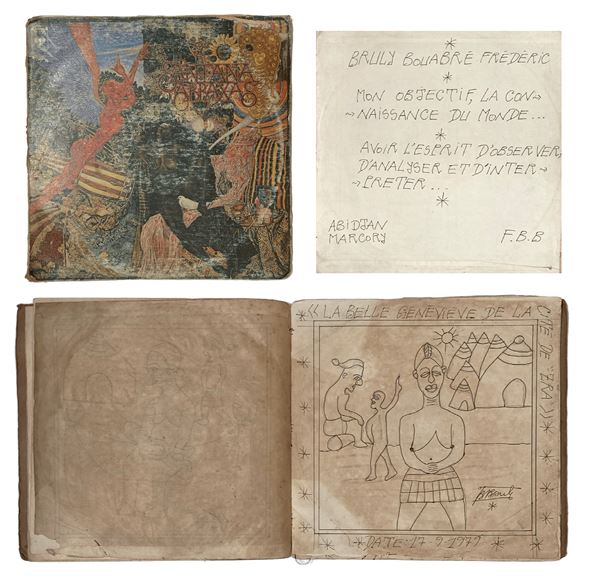 SANTANA
ABRAXAS
BRULY BOUABRÉ FRÉDÉRIC
MON OBJECTIF, LA CON→
→NAISSANCE DU MONDE...
AVOIR L'ESPRIT D'OBSERVER,
D'ANALYSER ET D'INTER→
→PRETER...
ABIDJAN
MARCORY
F.B.B
<< LA BELLE GENEVIEVE DE LA
CITE DE "ZRA">>
DATE: 17-9-1979